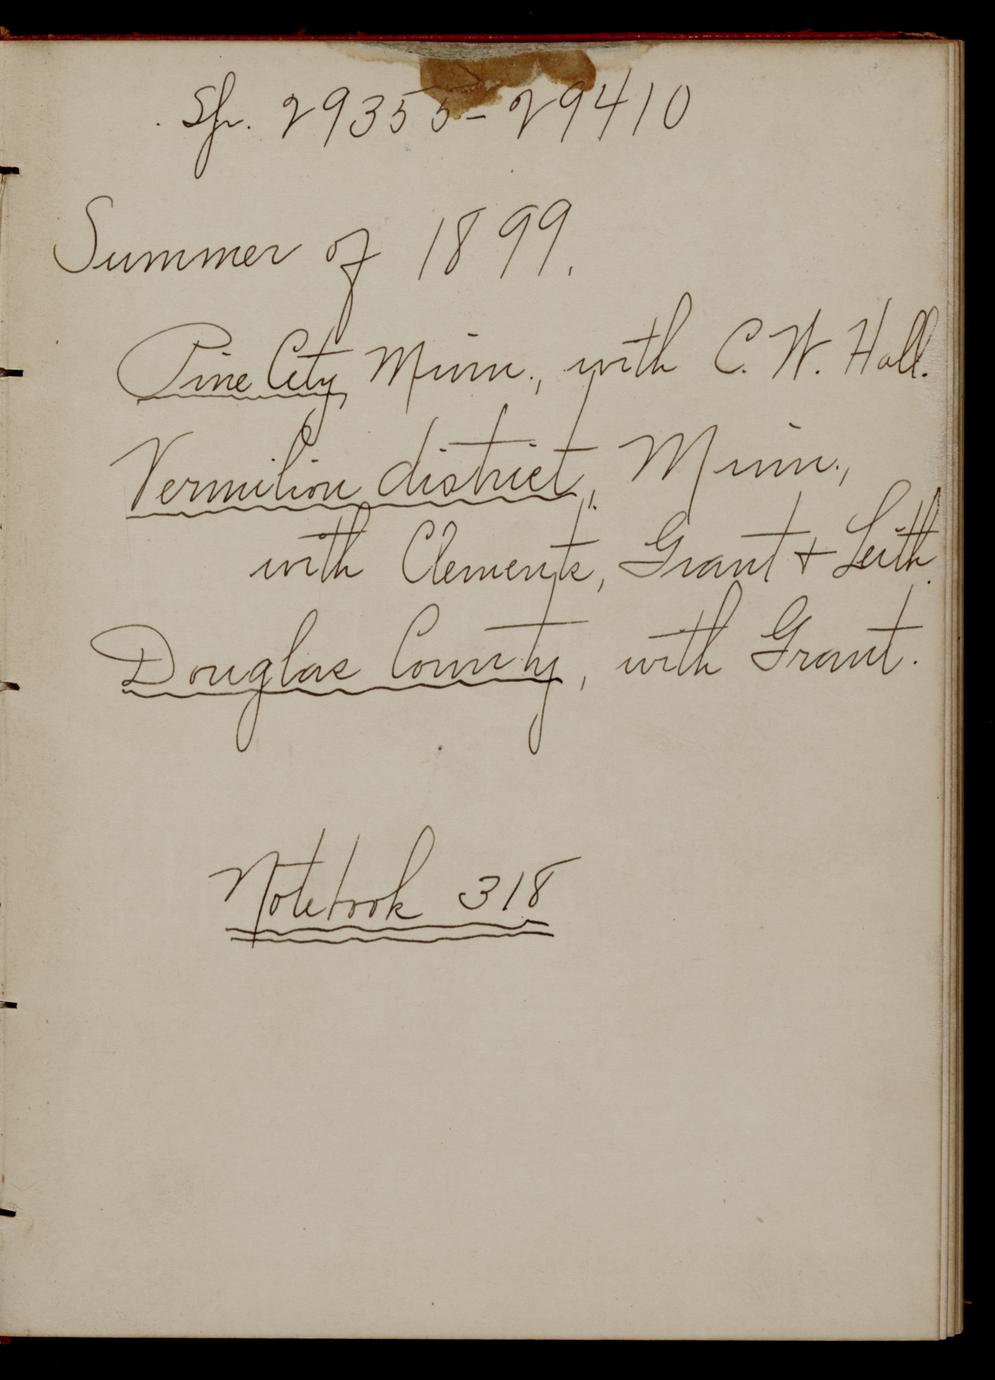 Sp. 29355-29410
Summer of 1899.
Pine City, Minn., with C. W. Hall.
Vermilion district, Minn.,
with Clements, Grant + Leith.
Douglas County, with Grant.
Notebook 318